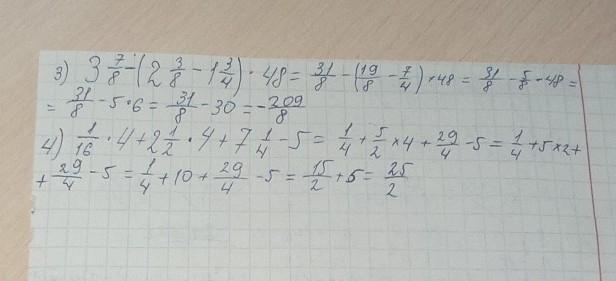 3) 3 7/8 - (2 3/8 - 1 3/4) · 48 = 31/8 - (19/8 - 7/4) · 48 = 31/8 - 5/8 · 48 =
= 31/8 - 5 · 6 = 31/8 - 30 = - 209/8
4) 1/16 · 4 + 2 1/2 · 4 + 7 1/4 - 5 = 1/4 + 5/2 × 4 + 29/4 - 5 = 1/4 + 5 × 2 +
+ 29/4 - 5 = 1/4 + 10 + 29/4 - 5 = 15/2 + 5 = 25/2